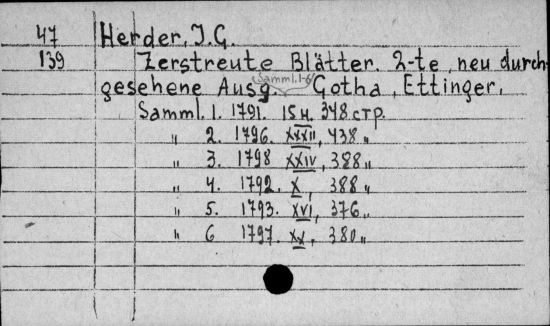 47 Herder, J.G.
139 Zerstreute Blätter. 2-te, neu durch-
(Samml. 1-6)
gesehene Ausg. Gotha, Ettinger,
Samml. 1. 1791. 15н. 348 стр.
" 2. 1796. XXXII, 438 "
" 3. 1798 XXIV, 388 "
" 4. 1792. X, 388 "
" 5. 1793. XVI, 376 "
" 6 1797. XX, 380 "